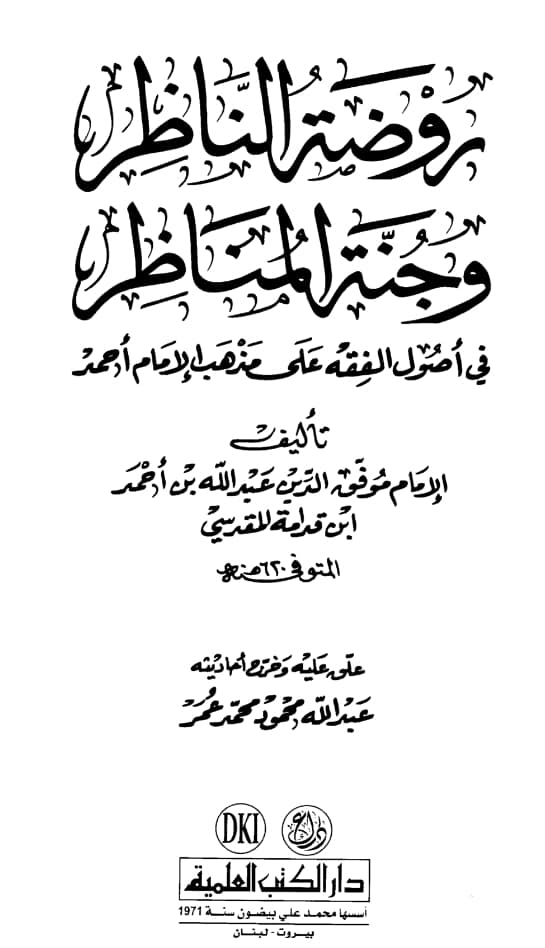 رَوْضَةُ النَّاظِر
وَجُنَّةُ الْمُنَاظِر
في أصول الفقه على مذهب الإمام أحمد
تأليف
الإمام موفق الدين عبد الله بن أحمد
ابن قدامة المقدسي
المتوفى ٦٢٠ هـ
علق عليه وخرّج أحاديثه
عبد الله محمود محمد عمر
DKI
دار الكتب العلمية
أسسها محمد علي بيضون سنة 1971
بيروت - لبنان